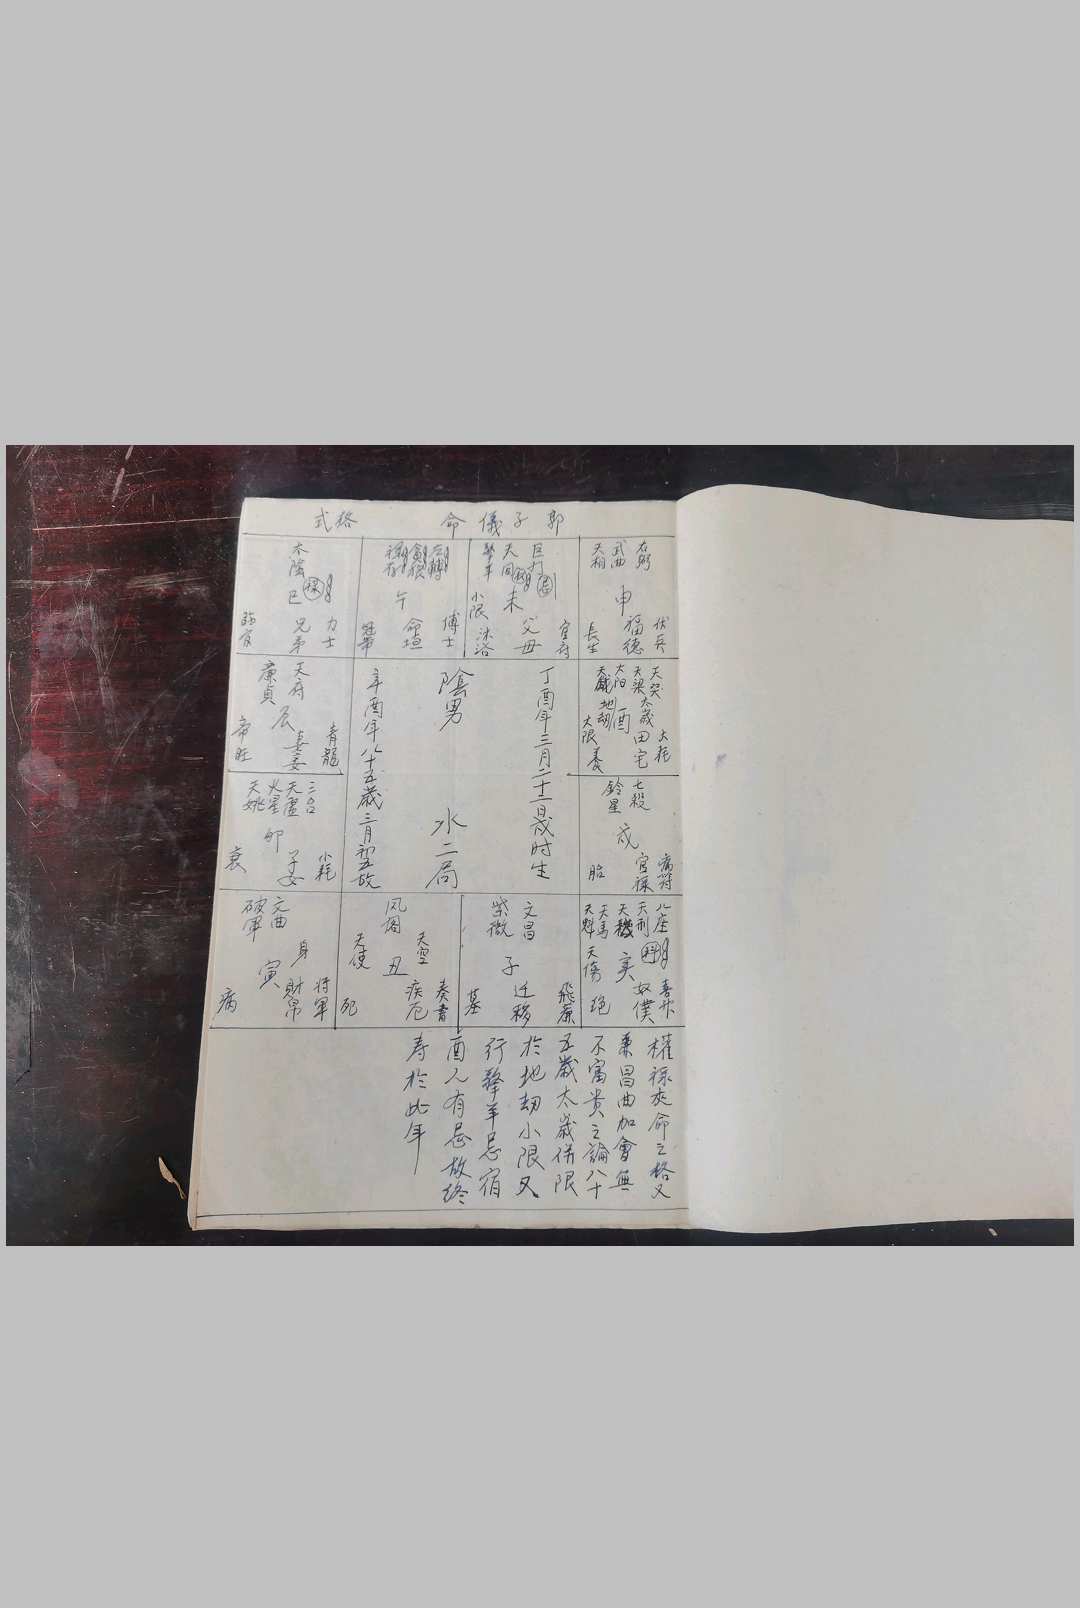 郭子儀命格式
右弼
武曲
天相
申
伏兵
福德
長生
巨門 忌
天同 权
擎羊
未
小限
官府
父母
沐浴
左輔
貪狼
禄存
午
博士
命垣
冠帶
太陰 禄
巳
力士
兄弟
天哭
天梁 太歲
太陽 酉
地劫
大耗
田宅
大限 養
天府
廉貞
辰
青龍
妻妾
帝旺
丁酉年三月二十二日戌时生
陰男 水二局
辛酉年八十五歲三月初五故
七殺
鈴星
戌
病符
官禄
胎
三台
天虛
火星
天姚
卯
小耗
子女
衰
八座
天刑
天機 科
天馬
天魁
亥
天傷
喜神
奴僕
絕
文昌
紫微
子
飛廉
迁移
墓
凤阁
天空
天使
丑
奏書
疾厄
死
文曲
破軍
身
寅
將軍
財帛
病
權禄夾命之格又
兼昌曲加會無
不富貴之論八十
五歲太歲併限
於地劫小限又
行擎羊忌宿
酉人有忌故終
寿於此年